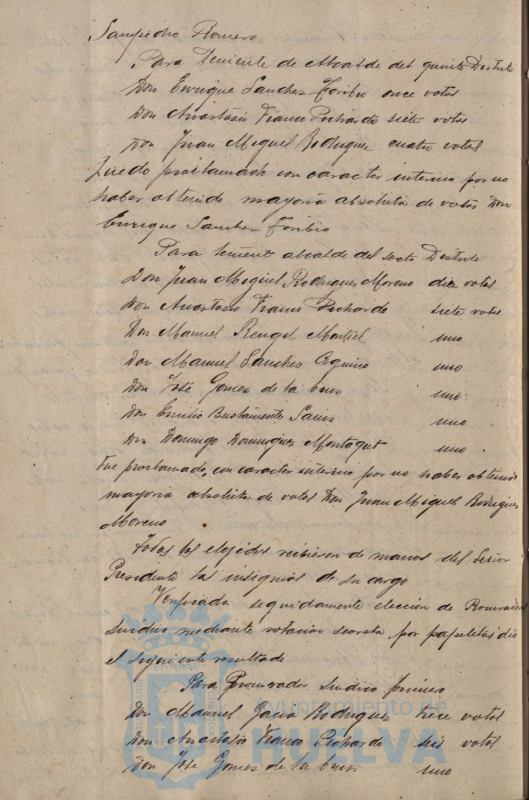 Sampedro Romero
Para Teniente de Alcalde del quinto Distrito
Don Enrique Sanchez Toribio once votos
Don Anastasio Franco Pichardo siete votos
Don Juan Miguel Rodriguez cuatro votos
Quedo proclamado con caracter interino por no
haber obtenido mayoria absoluta de votos Don
Enrique Sanchez Toribio
Para teniente alcalde del sexto Distrito
Don Juan Miguel Rodriguez Moreno diez votos
Don Anastasio Franco Pichardo siete votos
Don Manuel Rengel Montiel uno
Don Manuel Sanchez Aquino uno
Don José Gomez de la uno
Don Emilio Bustamente uno
Don Domingo Dominguez uno
Fue proclamado, con caracter interino por no haber obtenido
mayoria absoluta de votos Don Juan Miguel Rodriguez
Moreno
Todos los elegidos recibieron de manos del Señor
Presidente las insignias de su cargo
Verificada seguidamente eleccion de Procuradores
Sindicos mediante votacion secreta por papeletas dio
el siguiente resultado
Para Procurador Sindico primero
Don Manuel Garcia Rodriguez trece votos
Don Anastasio Franco Pichardo seis votos
Don José Gomez de la uno
Ayuntamiento de
HUELVA